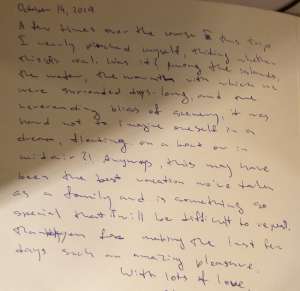 October 14, 2019
A few times over the course of this trip
I nearly pinched myself, thinking whether
this is real. Was it? Among the islands,
the water, the warmth with which we
were surrounded days-long, and one
neverending bliss of scenery, it was
hard not to imagine oneself in a
dream, floating on a boat or in
midair?! Anyways, this may have
been the best vacation we've taken
as a family and is something so
special that it will be difficult to repeat.
Thank you for making the last few
days such an amazing pleasure.
With lots of love,